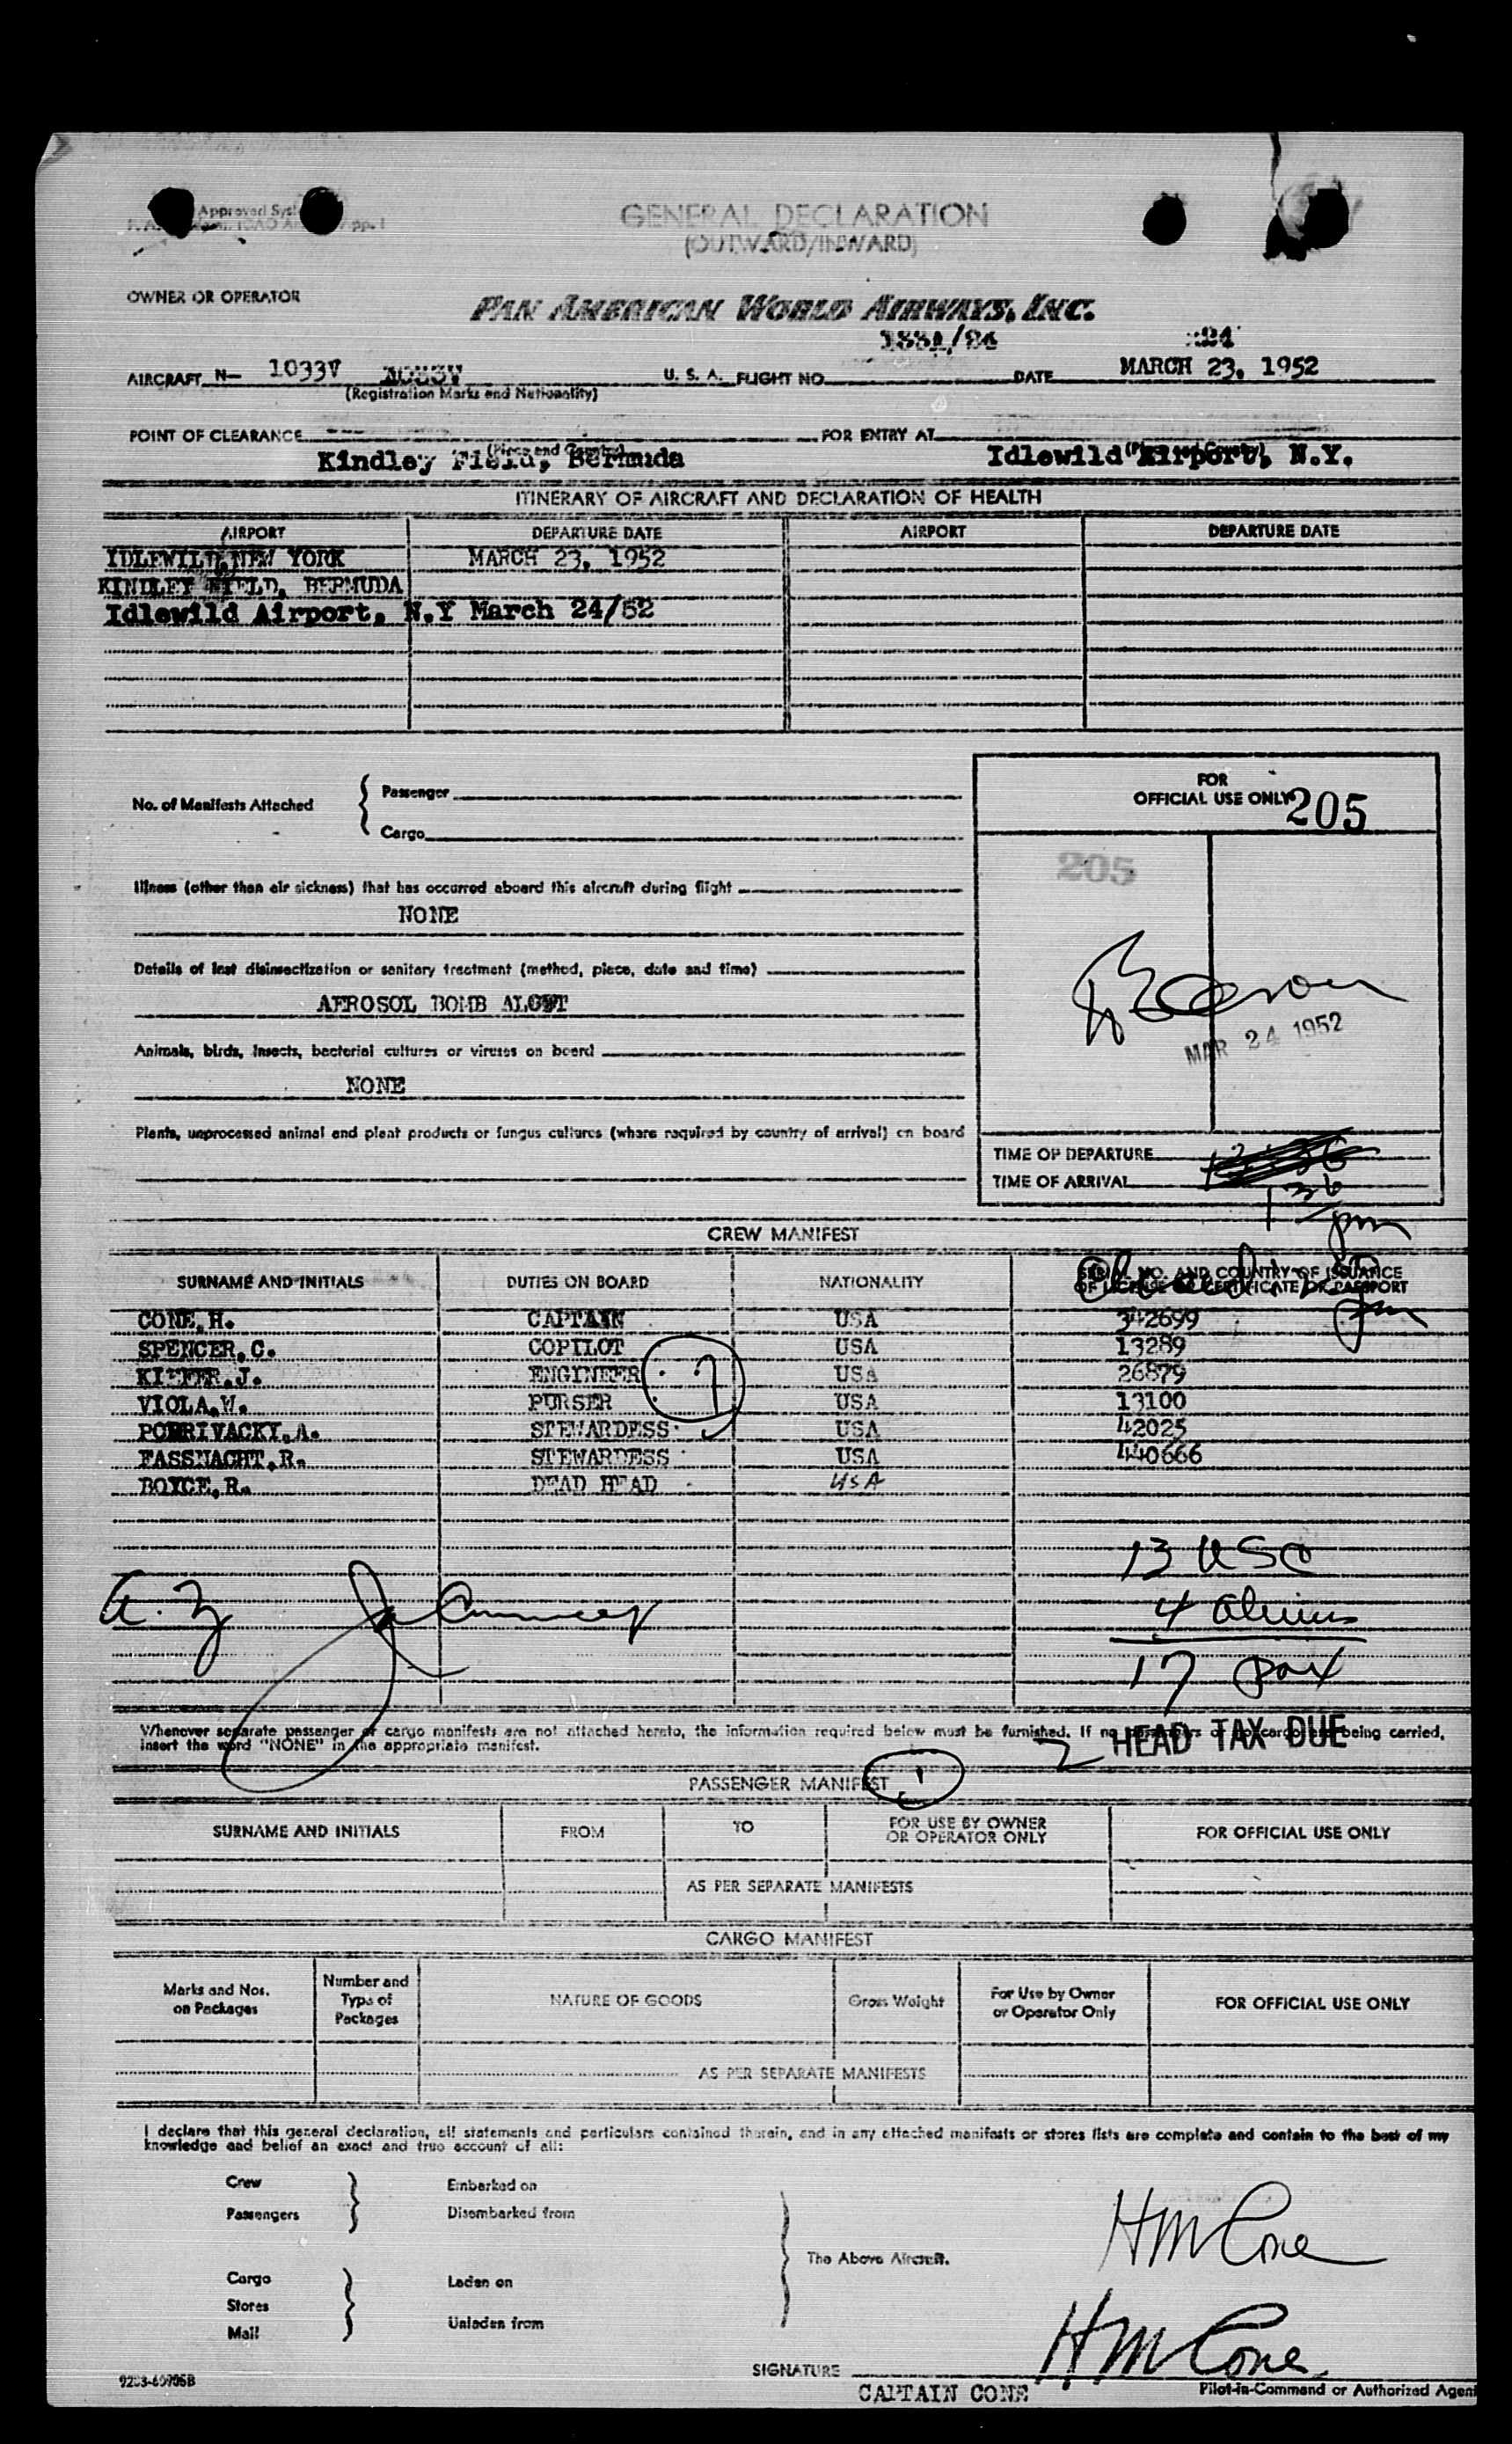 Approved
GENERAL DECLARATION
(OUTWARD/INWARD)
OWNER OR OPERATOR
PAN AMERICAN WORLD AIRWAYS, INC.
1331/24 24
AIRCRAFT N- 1033V U. S. A. FLIGHT NO. DATE MARCH 23, 1952
(Registration Marks and Nationality)
POINT OF CLEARANCE FOR ENTRY AT
Kindley Field, Bermuda Idlewild Airport, N.Y.
ITINERARY OF AIRCRAFT AND DECLARATION OF HEALTH
AIRPORT DEPARTURE DATE AIRPORT DEPARTURE DATE
IDLEWILD, NEW YORK MARCH 23, 1952
KINDLEY FIELD, BERMUDA
Idlewild Airport, N.Y March 24/52
FOR
OFFICIAL USE ONLY 205
No. of Manifests Attached
Passenger
Cargo
205
Illness (other than air sickness) that has occurred aboard this aircraft during flight
NONE
Details of last disinsectization or sanitary treatment (method, place, date and time)
AEROSOL BOMB ALOFT
MAR 24 1952
Animals, birds, insects, bacterial cultures or viruses on board
NONE
Plants, unprocessed animal and plant products or fungus cultures (where required by country of arrival) on board
TIME OF DEPARTURE
TIME OF ARRIVAL
136
pm
CREW MANIFEST
SURNAME AND INITIALS DUTIES ON BOARD NATIONALITY SERIAL NO. AND COUNTRY OF ISSUANCE
OF LICENSE OR CERTIFICATE OR PASSPORT
CONE, H. CAPTAIN USA 342699
SPENCER, C. COPILOT USA 13289
KIEFER, J. ENGINEER USA 26879
VIOLA, W. PURSER USA 13100
POHRIVACKY, A. STEWARDESS USA 42025
FASSNACHT, R. STEWARDESS USA 440666
BOYCE, R. DEAD HEAD USA
7
13 USC
4 aliens
17 pax
Whenever separate passenger or cargo manifests are not attached hereto, the information required below must be furnished. If no passengers or no cargo are being carried,
insert the word "NONE" in the appropriate manifest.
2 HEAD TAX DUE
PASSENGER MANIFEST
SURNAME AND INITIALS FROM TO FOR USE BY OWNER
OR OPERATOR ONLY FOR OFFICIAL USE ONLY
AS PER SEPARATE MANIFESTS
CARGO MANIFEST
Marks and Nos.
on Packages
Number and
Type of
Packages
NATURE OF GOODS Gross Weight
For Use by Owner
or Operator Only
FOR OFFICIAL USE ONLY
AS PER SEPARATE MANIFESTS
I declare that this general declaration, all statements and particulars contained therein, and in any attached manifests or stores lists are complete and contain to the best of my
knowledge and belief an exact and true account of all:
Crew Embarked on
Passengers Disembarked from
The Above Aircraft.
HM Cone
Cargo Laden on
Stores
Mail Unladen from
SIGNATURE HM Cone
9203-60905B
CAPTAIN CONE Pilot-in-Command or Authorized Agent